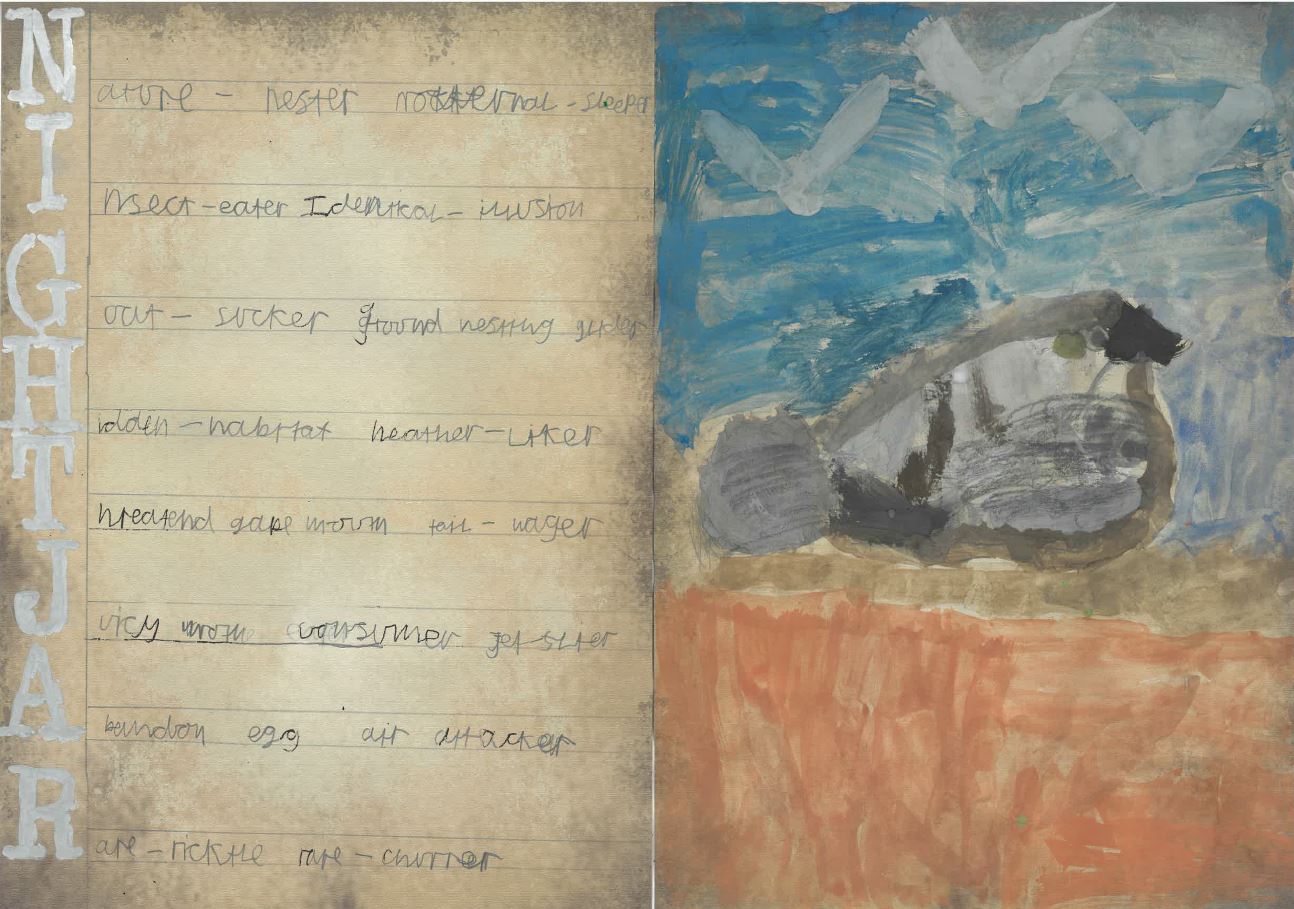 NIGHTJAR
ature - nester nocternal - sleeper
nsect - eater Identical - illusion
oat - sucker ground nesting glider
idden - habitat heather - Liker
hreatend gape mouth tail - wager
uicy moth consumer jet-setter
bandon egg air attacker
are - rare - churrer